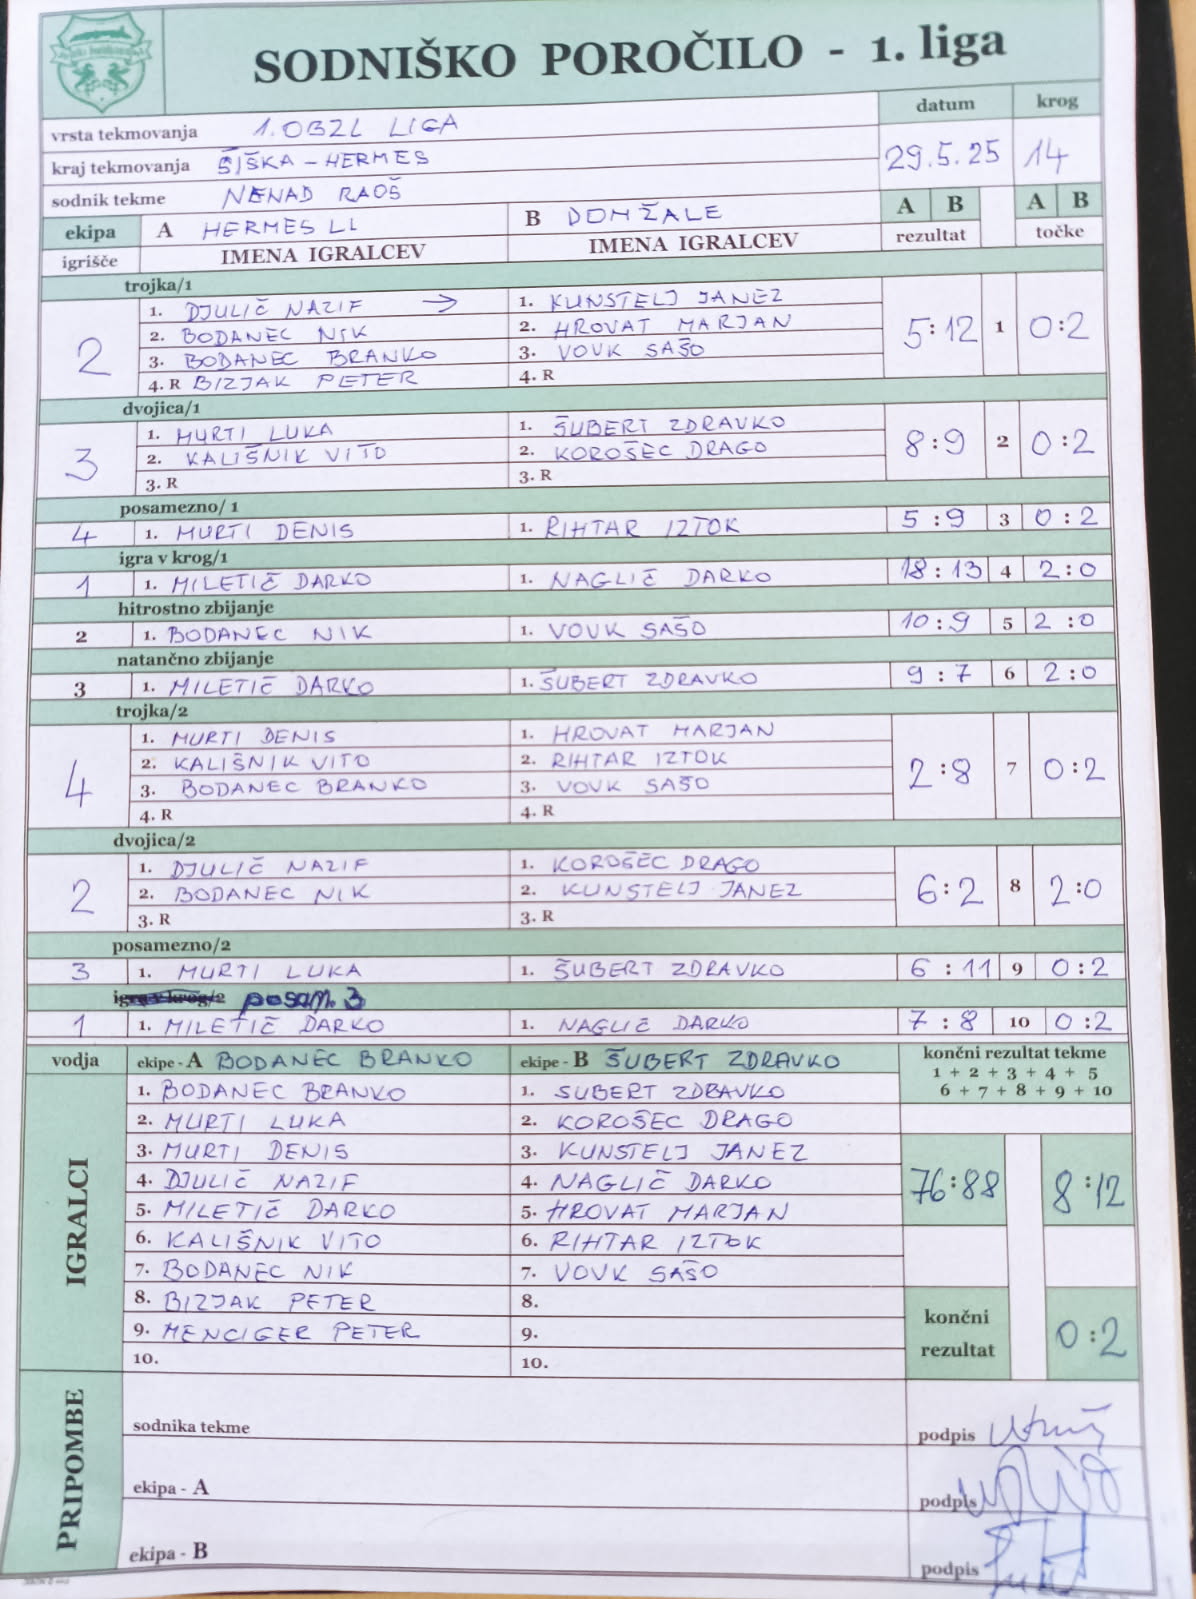 SODNIŠKO POROČILO - 1. liga
vrsta tekmovanja 1. OBZL LIGA datum krog
kraj tekmovanja ŠIŠKA - HERMES 29.5.25 14
sodnik tekme NENAD RAOŠ
ekipa A HERMES LL B DOMŽALE A B A B
igrišče IMENA IGRALCEV IMENA IGRALCEV rezultat točke
trojka/1
1. DJULIČ NAZIF → 1. KUNSTELJ JANEZ
2. BODANEC NIK 2. HROVAT MARJAN
2 5:12 1 0:2
3. BODANEC BRANKO 3. VOVK SAŠO
4. R BIZJAK PETER 4. R
dvojica/1
1. MURTI LUKA 1. ŠUBERT ZDRAVKO
3 2. KALIŠNIK VITO 2. KOROŠEC DRAGO 8:9 2 0:2
3. R 3. R
posamezno/ 1
4 1. MURTI DENIS 1. RIHTAR IZTOK 5:9 3 0:2
igra v krog/1
1 1. MILETIČ DARKO 1. NAGLIČ DARKO 18:13 4 2:0
hitrostno zbijanje
2 1. BODANEC NIK 1. VOVK SAŠO 10:9 5 2:0
natančno zbijanje
3 1. MILETIČ DARKO 1. ŠUBERT ZDRAVKO 9:7 6 2:0
trojka/2
1. MURTI DENIS 1. HROVAT MARJAN
2. KALIŠNIK VITO 2. RIHTAR IZTOK
4 2:8 7 0:2
3. BODANEC BRANKO 3. VOVK SAŠO
4. R 4. R
dvojica/2
1. DJULIČ NAZIF 1. KOROŠEC DRAGO
2 2. BODANEC NIK 2. KUNSTELJ JANEZ 6:2 8 2:0
3. R 3. R
posamezno/2
3 1. MURTI LUKA 1. ŠUBERT ZDRAVKO 6:11 9 0:2
igra v krog/2 posam. 3
1 1. MILETIČ DARKO 1. NAGLIČ DARKO 7:8 10 0:2
vodja ekipe - A BODANEC BRANKO ekipe - B ŠUBERT ZDRAVKO končni rezultat tekme
1 + 2 + 3 + 4 + 5
6 + 7 + 8 + 9 + 10
IGRALCI
1. BODANEC BRANKO 1. ŠUBERT ZDRAVKO
2. MURTI LUKA 2. KOROŠEC DRAGO
3. MURTI DENIS 3. KUNSTELJ JANEZ
4. DJULIČ NAZIF 4. NAGLIČ DARKO 76:88 8:12
5. MILETIČ DARKO 5. HROVAT MARJAN
6. KALIŠNIK VITO 6. RIHTAR IZTOK
7. BODANEC NIK 7. VOVK SAŠO
8. BIZJAK PETER 8.
9. MENCIGER PETER 9.
10. 10.
končni rezultat 0:2
PRIPOMBE
sodnika tekme podpis
ekipa - A podpis
ekipa - B podpis